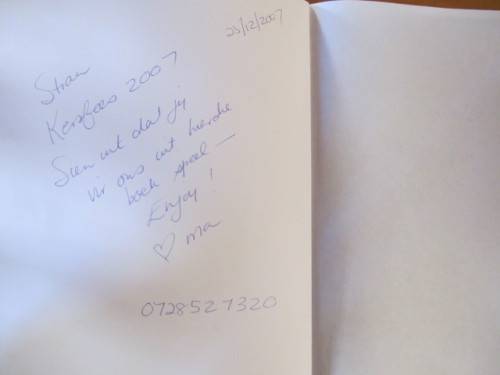 23/12/2007
Kersfees 2007
Sien uit dat jy
vir ons uit hierdie
boek speel —
Enjoy!
♡ ma
0728527320